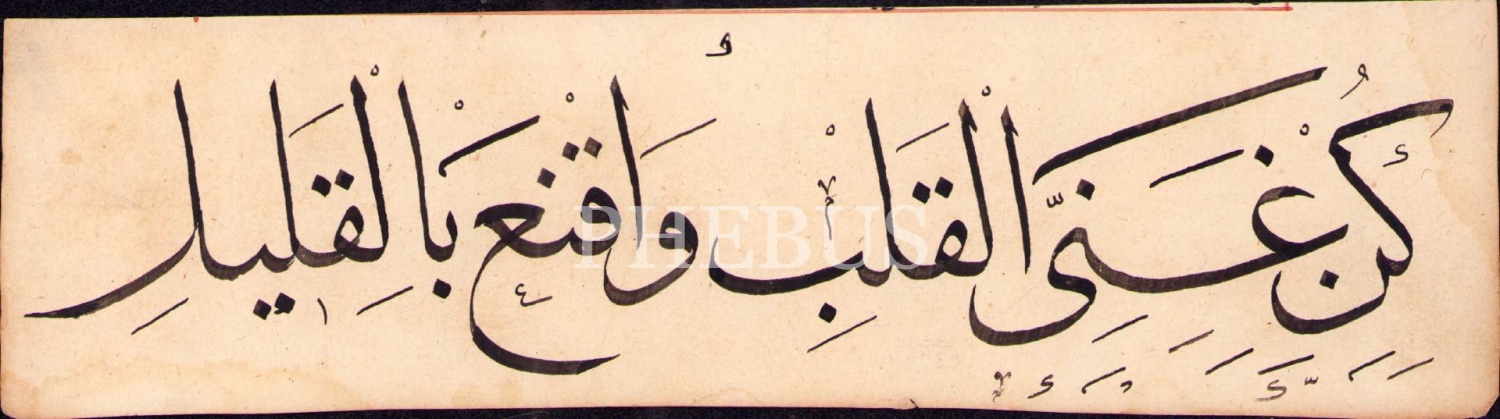 كُنْ غَنِيَّ الْقَلْبِ وَاقْنَعْ بَالْقَلِيلِ
PHEBUS